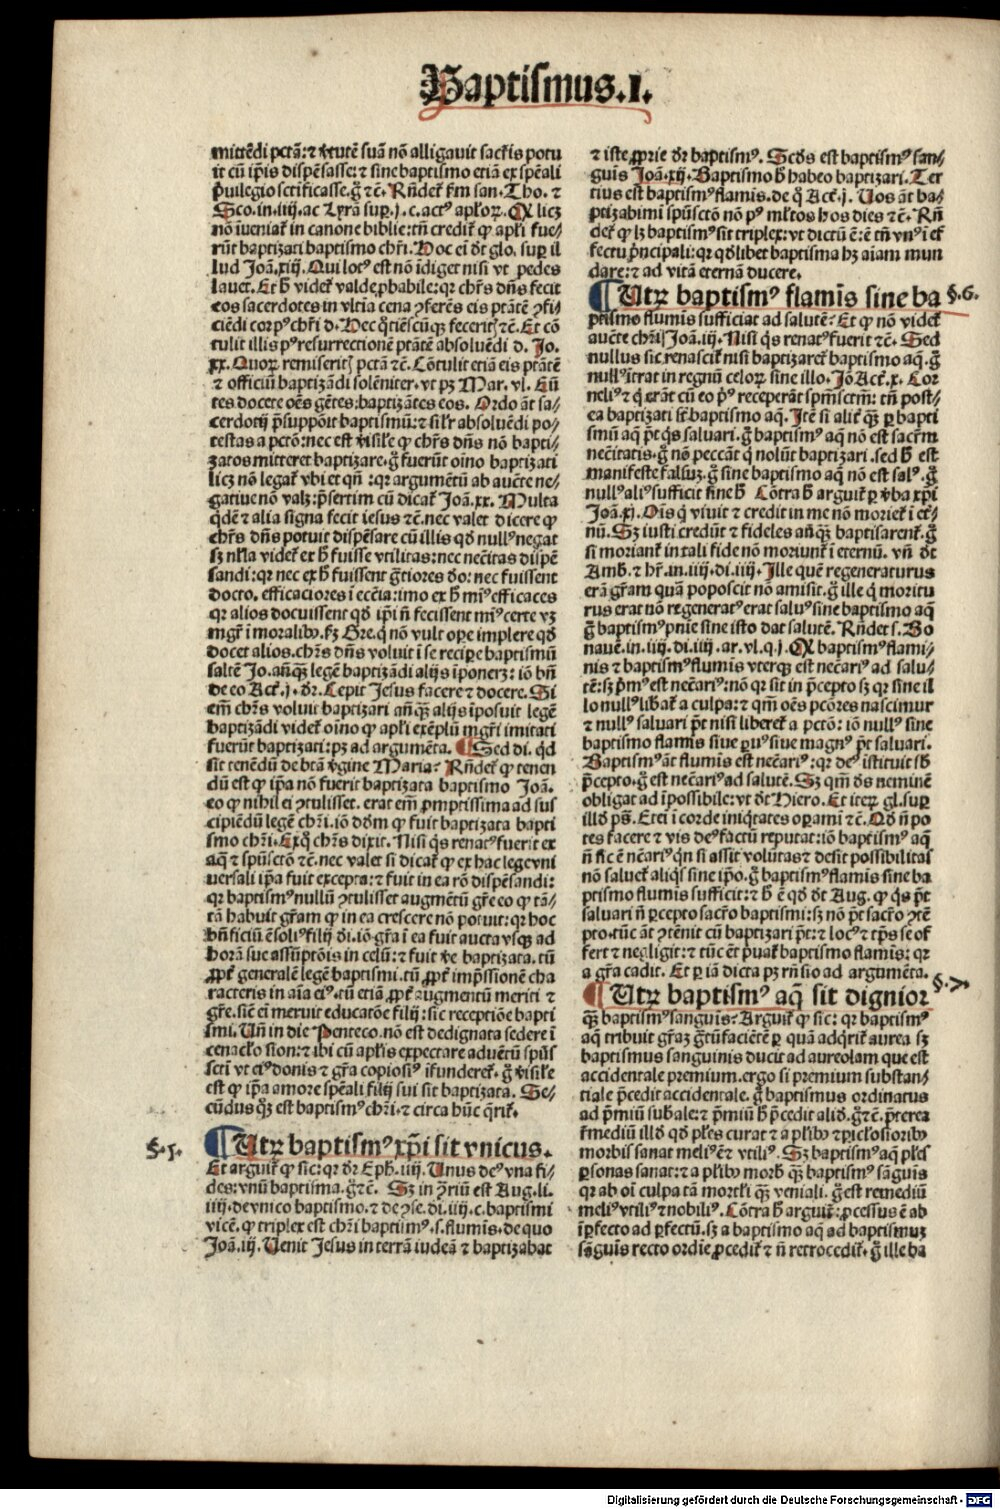 Baptismus.I.
mittēdi pctā: ⁊ v̄tutē suā nō alligauit sacr̄is potu
it cū ip̄is dispēsasse: ⁊ sine baptismo etiā ex sp̄eali
p̄uilegio sctificasse. ḡ ⁊c̄. Rn̄det̄ fm san. Tho. ⁊
Sco. in. iiij. ac Lyra sup. j. c. actꝰ apl̄oꝝ. Q licz
nō iueniat̄ in canone biblie: tn̄ credit̄ ꝙ apl̄i fue⸗
rūt baptizati baptismo chr̄i. Hoc ei dt̄ glo. sup il
lud Joā. xiij. Qui lotꝰ est nō īdiget nisi vt pedes
lauet. Et h̄ videt̄ valde ꝓbabile: qꝛ chr̄s dn̄s fecit
eos sacerdotes in vltīa cena ꝯferēs eis ptātē ꝯfi⸗
ciēdi corpꝰ chr̄i d. Hec q̄tiēscūqꝫ feceritꝭ ⁊c̄. Et cō
tulit illis pꝰ resurrectionē ptātē absoluēdi d. Jo.
xx. Quoꝝ remiseritꝭ pctā ⁊c̄. Cōtulit etiā eis ptātē
⁊ officiū baptizādi solēniter. vt pꝫ Mar. vl. Eū
tes docete oēs gētes: baptizātes eos. Ordo āt sa⸗
cerdotij p̄suppōit baptismū: ⁊ silr̄ absoluēdi po⸗
testas a pctō: nec est v̄isil̄e ꝙ chr̄s dn̄s nō bapti⸗
zatos mitteret baptizare. ḡ fuerūt oīno baptizati
licꝫ nō legat̄ vbi et qn̄: qꝛ argumētū ab aucte ne⸗
gatiue nō valꝫ: p̄sertim cū dicat̄ Joā. xx. Multa
q̄dē ⁊ alia signa fecit iesus ⁊c̄. nec valet dicere ꝙ
chr̄s dn̄s potuit dispēsare cū illis qd̄ nullꝰ negat
sꝫ nl̄la videt̄ ex h̄ fuisse vtilitas: nec nec̄itas dispē
sandi: qꝛ nec ex h̄ fuissent ḡtiores d̄o: nec fuissent
docto. efficaciores ī ecc̄ia: imo ex h̄ miꝰ efficaces
qꝛ alios docuissent qd̄ ip̄i n̄ fecissent miꝰ certe vꝫ
mgr̄ ī moralibꝰ. fꝫ Gre. q̄ nō vult ope implere qd̄
docet alios. chr̄s dn̄s voluit ī se recipe baptismū
saltē Jo. an̄qꝫ legē baptizādi alijs īponerꝫ: iō bn̄
de eo Act̄. j. dr̄. Cepit Jesus facere ⁊ docere. Si
em̄ chr̄s voluit baptizari an̄qꝫ alijs īposuit legē
baptizādi videt̄ oīno ꝙ apl̄i exēplū mgr̄i imitati
fuerūt baptizati: pꝫ ad argumēta. ¶ Sed di. qd̄
sit tenēdū de btā v̄gine Maria? Rn̄det̄ ꝙ tenen
dū est ꝙ ip̄a nō fuerit baptizata baptismo Joā.
eo ꝙ nihil ei ꝯtulisset. erat em̄ ꝓmptissima ad sus
cipiēdū legē chr̄i. iō d̄dm ꝙ fuit baptizata bapti
smo chr̄i. Exq̄ chr̄s dixit. Nisi q̄s renatꝰ fuerit ex
aq̄ ⁊ spūsctō ⁊c̄. nec valet si dicat̄ ꝙ ex hac lege vni
uersali ip̄a fuit excepta: ⁊ fuit in ea rō dispēsandi:
qꝛ baptismꝰ nullū ꝯtulisset augmētū gr̄e eo ꝙ tā⸗
tā habuit gr̄am ꝙ in ea crescere nō potuit: qꝛ hoc
bn̄ficiū ē soliꝰ filij di. iō gr̄a ī ea fuit aucta vsqꝫ ad
horā sue assūptōis in celū: ⁊ fuit v̄e baptizata. tū
ꝓpt̄ generalē legē baptismi. tū ꝓpt̄ imp̄ssionē cha
racteris in aīa eiꝰ. tū etiā ꝓpt̄ augmentū meriti ⁊
gr̄e. sic̄ ei meruit educatōe filij: sic receptiōe bapti
smi. Un̄ in die Penteco. nō est dedignata sedere ī
cenac̄lo sion: ⁊ ibi cū apl̄is expectare aduētū spūs
scti vt eiꝰ donis ⁊ gr̄a copiosiꝰ ifunderet̄. ḡ v̄isil̄e
est ꝙ ip̄a amore sp̄eali filij sui sit baptizata. Se⸗
cūdus q̄ꝫ est baptismꝰ chr̄i. ⁊ circa hūc q̄rit̄.
§. 5.
¶ Utꝝ baptismꝰ xp̄i sit vnicus.
Et arguit̄ ꝙ sic: qꝛ dr̄ Eph. iiij. Unus deꝰ vna fi⸗
des: vnū baptisma. ḡ ⁊c̄. Sꝫ in ꝯriū est Aug. li.
iiij. de vnico baptismo. ⁊ de ꝯse. di. iiij. c. baptismi
vicē. ꝙ triplex est chr̄i baptismꝰ. s. flumīs. de quo
Joā. iij. Uenit Jesus in terrā iudeā ⁊ baptizabat
⁊ iste ꝓprie dr̄ baptismꝰ. Scd̄s est baptismꝰ san⸗
guis Joā. xij. Baptismo h̄ habeo baptizari. Ter
tius est baptismꝰ flamis. de q̄ Act̄. j. Uos āt ba⸗
ptizabimi spūsctō nō pꝰ ml̄tos hos dies ⁊c̄. Rn̄
det̄ ꝙ lꝫ baptismꝰ sit triplex: vt dictū ē: ē tn̄ vnꝰ ī ef
fectu p̄ncipali: qꝛ qd̄libet baptisma hꝫ aīam mun
dare: ⁊ ad vitā eternā ducere.
¶ Utꝝ baptismꝰ flamīs sine ba
§. 6.
ptismo flumīs sufficiat ad salutē? Et ꝙ nō videt̄
aucte chr̄i Joā. iij. Nisi q̄s renatꝰ fuerit ⁊c̄. Sed
nullus sic renascit̄ nisi baptizaret̄ baptismo aq̄. ḡ
nullꝰ ītrat in regnū celoꝝ sine illo. Jō Act̄. x. Cor
neliꝰ ⁊ q̄ erāt cū eo pꝰ receperāt spm̄sctm̄: tn̄ post⸗
ea baptizati st̄ baptismo aq̄. Jtē si alit̄ q̄ꝫ ꝑ bapti
smū aq̄ p̄t q̄s saluari. ḡ baptismꝰ aq̄ nō est sacr̄m
nec̄itatis. ḡ nō peccāt q̄ nolūt baptizari. sed h̄ est
manifeste falsuꝫ. ḡ sine baptismo aq̄ nō est salꝰ. ḡ
nullꝰ aliꝰ sufficit sine h̄ Cōtra h̄ arguit̄ ꝑ v̄ba xp̄i
Joā. xj. Oīs q̄ viuit ⁊ credit in me nō moriet̄ ī et̄⸗
nū. Sꝫ iusti credūt ⁊ fideles an̄qꝫ baptisarent̄. ḡ
si moriant̄ in tali fide nō moriunt̄ ī eternū. vn̄ dt̄
Amb. ⁊ hr̄. in. iiij. di. iiij. Ille quē regeneraturus
erā gr̄am quā poposcit nō amisit. ḡ ille q̄ moritu
rus erat nō regeneratꝰ erat saluꝰ sine baptismo aq̄
ḡ baptismꝰ pn̄ie sine isto dat salutē. Rn̄det s. Bo
nauē. in. iiij. di. iiij. ar. vl. q. j. Q baptismꝰ flami⸗
nis ⁊ baptismꝰ flumis vterqꝫ est nec̄ariꝰ ad salu⸗
tē: sꝫ p̄mꝰ est nec̄ariꝰ: nō qꝛ sit in p̄cepto sꝫ qꝛ sine il
lo nullꝰ libat̄ a culpa: ⁊ qm̄ oēs pctōres nascimur
⁊ nullꝰ saluari p̄t nisi liberet̄ a pctō: iō nullꝰ sine
baptismo flamis siue ꝑuꝰ siue magnꝰ p̄t saluari.
Baptismꝰ āt flumis est nec̄ariꝰ: qꝛ deꝰ istituit sb̄
p̄cepto. ḡ est nec̄ariꝰ ad salutē. Sꝫ qm̄ dn̄s neminē
obligat ad ipossibile: vt dt̄ Hiero. Et iterꝝ gl. sup
illd̄ ps̄. Etei ī corde iniq̄tates opamī ⁊c̄. Qd̄ n̄ po
tes facere ⁊ vis deꝰ factū reputat: iō baptismꝰ aq̄
n̄ sic ē nec̄ariꝰ qn̄ si assit volūtas ⁊ desit possibilitas
nō saluet̄ aliq̄s sine ip̄o. ḡ baptismꝰ flamis sine ba
ptismo flumis sufficit: ⁊ h̄ ē qd̄ dt̄ Aug. ꝙ q̄s p̄t
saluari n̄ ꝑcepto sacr̄o baptismi: sꝫ nō p̄t sacr̄o ꝯtē
pto. tūc āt ꝯtēnit cū baptizari p̄t: ⁊ locꝰ ⁊ tp̄s se of
fert ⁊ negligit: ⁊ tūc ēt p̄uat̄ baptismo flamis: qꝛ
a gr̄a cadit. Et ꝑ iā dicta pꝫ rn̄sio ad argumēta.
¶ Utꝝ baptismꝰ aq̄ sit dignior
§. 7.
q̄ꝫ baptismꝰ sanguīs? Arguit̄ ꝙ sic: qꝛ baptismꝰ
aq̄ tribuit gr̄aꝫ ḡtū faciētē ꝑ quā adq̄rit̄ aurea sꝫ
baptismus sanguinis ducit ad aureolam que est
accidentale premium. ergo si premium substan⸗
tiale p̄cedit accidentale. ḡ baptismus ordinatus
ad p̄miū subāle: ⁊ p̄miū h̄ p̄cedit aliud. ḡ ⁊c̄. p̄terea
r̄mediū illd̄ qd̄ pl̄es curat ⁊ a pl̄ibꝰ ⁊ ꝑiclosioribꝰ
morbis sanat meliꝰ ē ⁊ vtiliꝰ. Sꝫ baptismꝰ aq̄ pl̄es
ꝑsonas sanat: ⁊ a pl̄ibꝰ morb̄ q̄ꝫ baptismꝰ sāguīs
qꝛ ab oī culpa tā mortli q̄ꝫ veniali. ḡ est remediū
meliꝰ vtiliꝰ ⁊ nobiliꝰ. Cōtra h̄ arguit̄: ꝓcessus ē ab
īꝑfecto ad ꝑfectū. sꝫ a baptismo aq̄ ad baptismuꝫ
sāguīs recto ordīe ꝓcedit̄ ⁊ n̄ retrocedit̄. ḡ ille ba
Digitalisierung gefördert durch die Deutsche Forschungsgemeinschaft - DFG